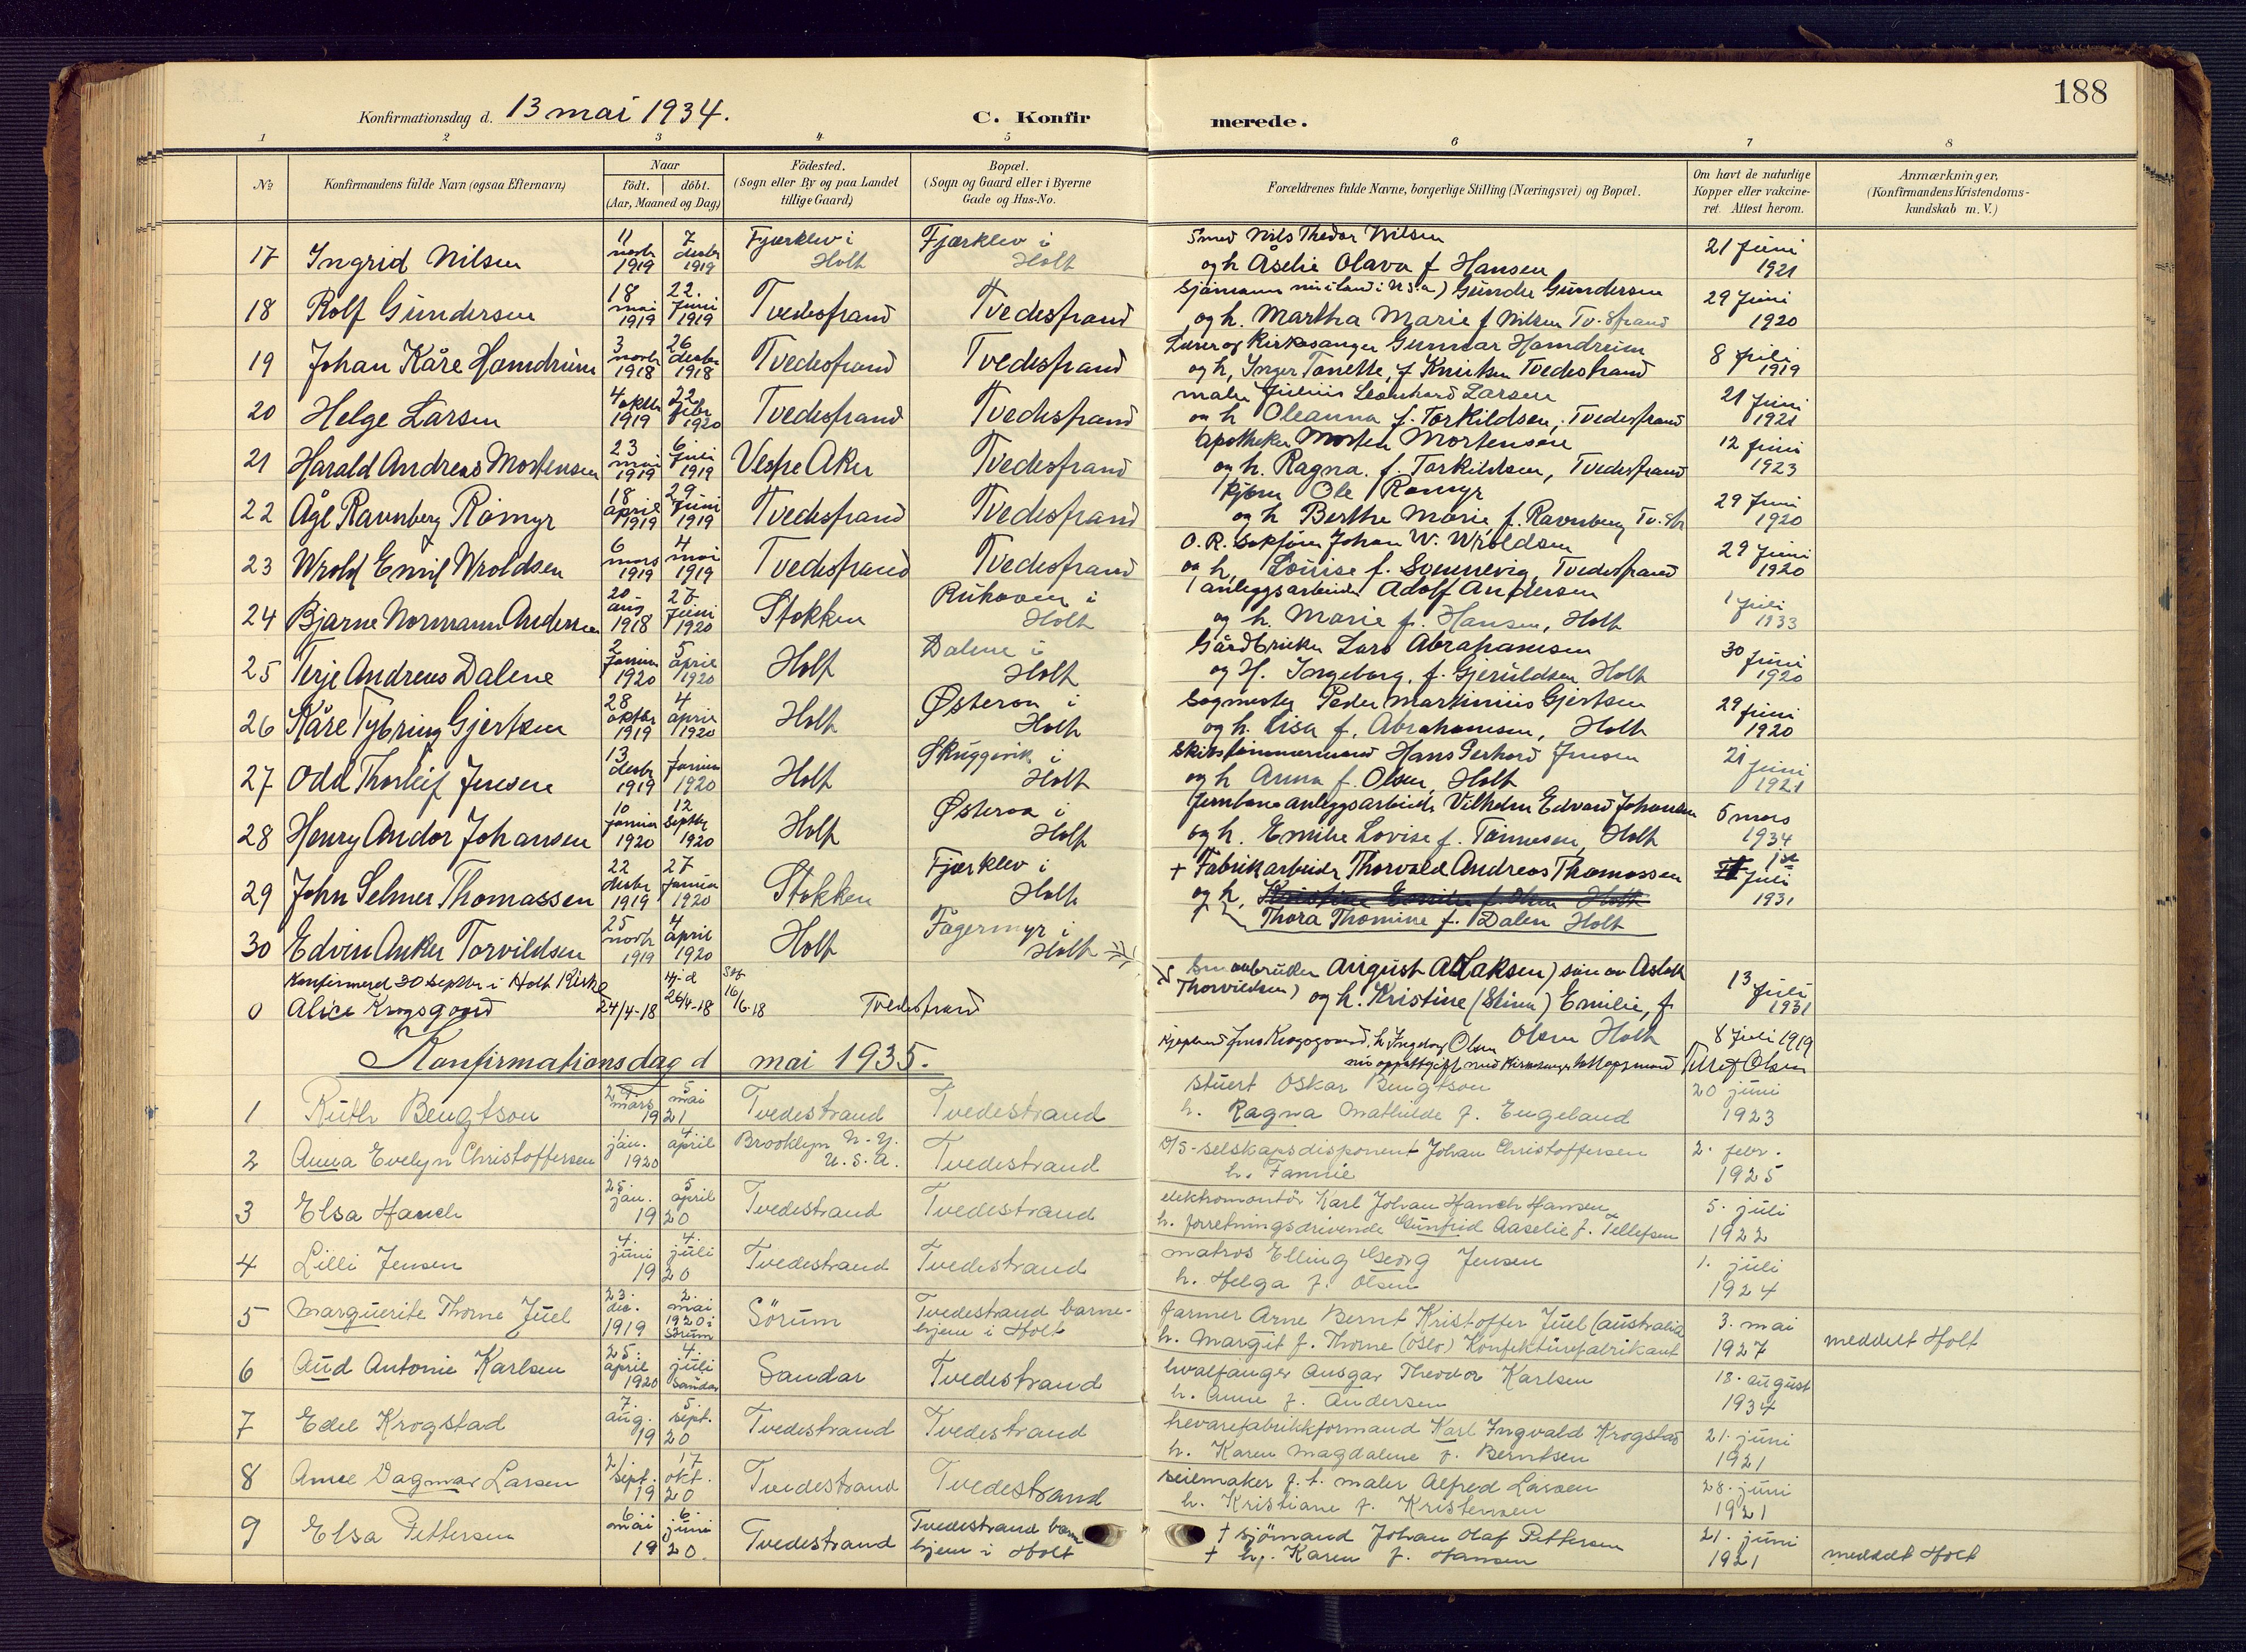 188
Konfirmationsdag d. 13 mai 1934. C. Konfirmerede.
1 2 3 4 5 6 7 8
No Konfirmandens fulde Navn (ogsaa Efternavn) Naar født. døbt. (Aar, Maaned og Dag) Födested. (Sogn eller By og paa Landet tillige Gaard) Bopæl. (Sogn og Gaard eller i Byerne Gade og Hus-No. Forældrenes fulde Navne, borgerlige Stilling (Næringsvei) og Bopæl. Om havt de naturlige Kopper eller vakcineret. Attest herom. Anmærkninger, (Konfirmandens Kristendomskundskab m. V.)
17 Ingrid Nilsen 11 novbr 1919 7 desbr 1919 Fjærklev i Holt Fjærklev i Holt Smed Nils Thedor Nilsen og h Åselie Olava f Hansen 21 Juni 1921
18 Rolf Gundersen 18 mai 1919 22. Juni 1919 Tvedestrand Tvedestrand Sjömann nu i land i U.S.a) Gunder Gundersen og h. Martha Marie f Nilsen Tv.strand 29 Juni 1920
19 Johan Kåre Homdrum 3 novbr 1918 26 desbr 1918 Tvedestrand Tvedestrand Lærer og Kirkesanger Gunnar Homdrum og h, Inger Tonette, f Knutsen Tvedestrand 8 Juli 1919
20 Helge Larsen 4 oktbr 1919 22 febr 1920 Tvedestrand Tvedestrand maler Julius Leonhard Larsen og h Oleanna f. Torkildsen, Tvedestrand 21 Juni 1921
21 Harald Andreas Mortensen 23 mai 1919 6 Juli 1919 Vestre Aker Tvedestrand Apotheker Morten Mortensen og h. Ragna. f. Torkildsen, Tvedestrand 12 Juni 1923
22 Åge Ravnberg Römyr 18 april 1919 29 Juni 1919 Tvedestrand Tvedestrand Ole Romyr og h Berthe Marie f. Ravnberg Tv.str 29 Juni 1920
23 Wrold Emil Wroldsen 6 mars 1919 4 mai 1919 Tvedestrand Tvedestrand O.R. Sakförer Johan W. Wroldsen og h, Louise f. Sonnevig, Tvedestrand 29 Juni 1920
24 Bjarne Normann Andersen 20 aug 1918 27 Juni 1920 Stokken i Holt anleggsarbeider Adolf Andersen og h. Marie f. Hansen, Holt 1 Juli 1933
25 Terje Andreas Dalene 2 Januar 1920 5 april 1920 Holt Dalene i Holt Gårdbruker Lars Abrahamsen og H. Ingeborg, f. Gjeruldsen Holt 30 Juni 1920
26 Kåre Tybring Gjertsen 28 oktbr 1919 4 april 1920 Holt Østeraa i Holt Sagmester Peder Martinius Gjertsen og h. Lisa f, Abrahamsen, Holt 29 Juni 1920
27 Odd Thorleif Jensen 13 desbr 1919 1 Januar 1920 Holt Skuggevik i Holt Skibstömmermand Hans Gerhard Jensen og h Anna f. Olsen, Holt 21 Juni 1921
28 Henry Andor Johansen 10 Januar 1920 12 Septbr 1920 Holt Østeraa i Holt Jernbaneanleggsarbeider Vilhelm Edvard Johansen og h. Emilie Lovise f. Tönnesen, Holt 5 mars 1934
29 John Selmer Thomassen 22 desbr 1919 27 Januar 1920 Stokken Fjærklev i Holt + Fabrikarbeider Thorvald Andreas Thomassen og h, Thora Thomine f. Dalen Holt 1ste Juli 1931
30 Edvin Anker Torvildsen 25 novbr 1919 4 april 1920 Holt Fagermyr i Holt Småbruker August Aslaksen) sön av Aslak Thorvildsen) og h. Kristine (Stina) Emilie, f. Olsen Holt 13 Juli 1931
Konfirmerd 30 Septbr i Holt Kirke
0 Alice Krogsgaard 24/4-18 Hj.d 26/4-18 Stf 16/6-18 Tvedestrand Jens Krogsgaard, h Ingeborg Olsen 8 Juli 1919
nu oppattgift med Kirkesanger Tellef Olsen
Konfirmationsdag d mai 1935.
1 Ruth Bengtson 2 mars 5 mai 1921 Tvedestrand Tvedestrand stuert Oskar Bengtson h. Ragna Mathilde f. Engeland 20 juni 1923
2 Anna Evelyn Christoffersen 1. jan. 1920 4. april Brooklyn N.Y. U.S.A. Tvedestrand D/S-selskapsdisponent Johan Christoffersen h. Fannie 2. febr. 1925
3 Elsa Hauch 25. jan. 5 april 1920 Tvedestrand Tvedestrand elektromontör Karl Johan Hauch Hansen h. forretningsdrivende Gunfrid Aaselie f. Tellefsen 5. juli 1922
4 Lilli Jensen 4. juni 4. juli 1920 Tvedestrand Tvedestrand matros Elling Georg Jensen h. Helga f. Olsen 1. juli 1924
5 Marguerite Thorne Juel 23. dec. 1919 2. mai 1920 i Sörum Sörum Tvedestrand barnehjem i Holt farmer Arne Bernt Kristoffer Juel (Australia h. Margit f. Thorne (Oslo) Konfektionsfabrikant 3. mai 1927 meddelt Holt
6 Aud Antonie Karlsen 25. april 1920 4. juli Sandar Sandar Tvedestrand hvalfanger Ansgar Theodor Karlsen h. Anne f. Andersen 18. august 1934
7 Edel Krogstad 7. aug. 5. sept. 1920 Tvedestrand Tvedestrand trevarefabrikkformand Karl Ingvald Krogstad h. Karen Magdalene f. Berntsen 21. juni 1921
8 Anne Dagmar Larsen 21. sept. 17 okt. 1920 Tvedestrand Tvedestrand seilmaker f. t. maler Alfred Larsen h. Kristiane f. Kristensen 28. juni 1921
9 Elsa Pettersen 6. mai 6. juni 1920. Tvedestrand Tvedestrand barnehjem i Holt + sjömand Johan Olaf Pettersen + h. Karen f. Hansen 21. juni 1921 meddelt Holt